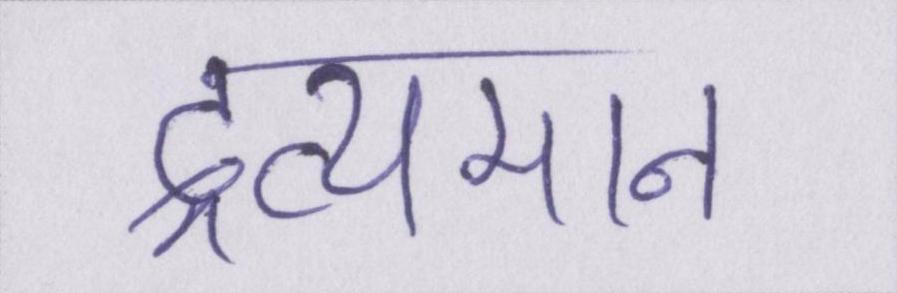 द्रव्यमान